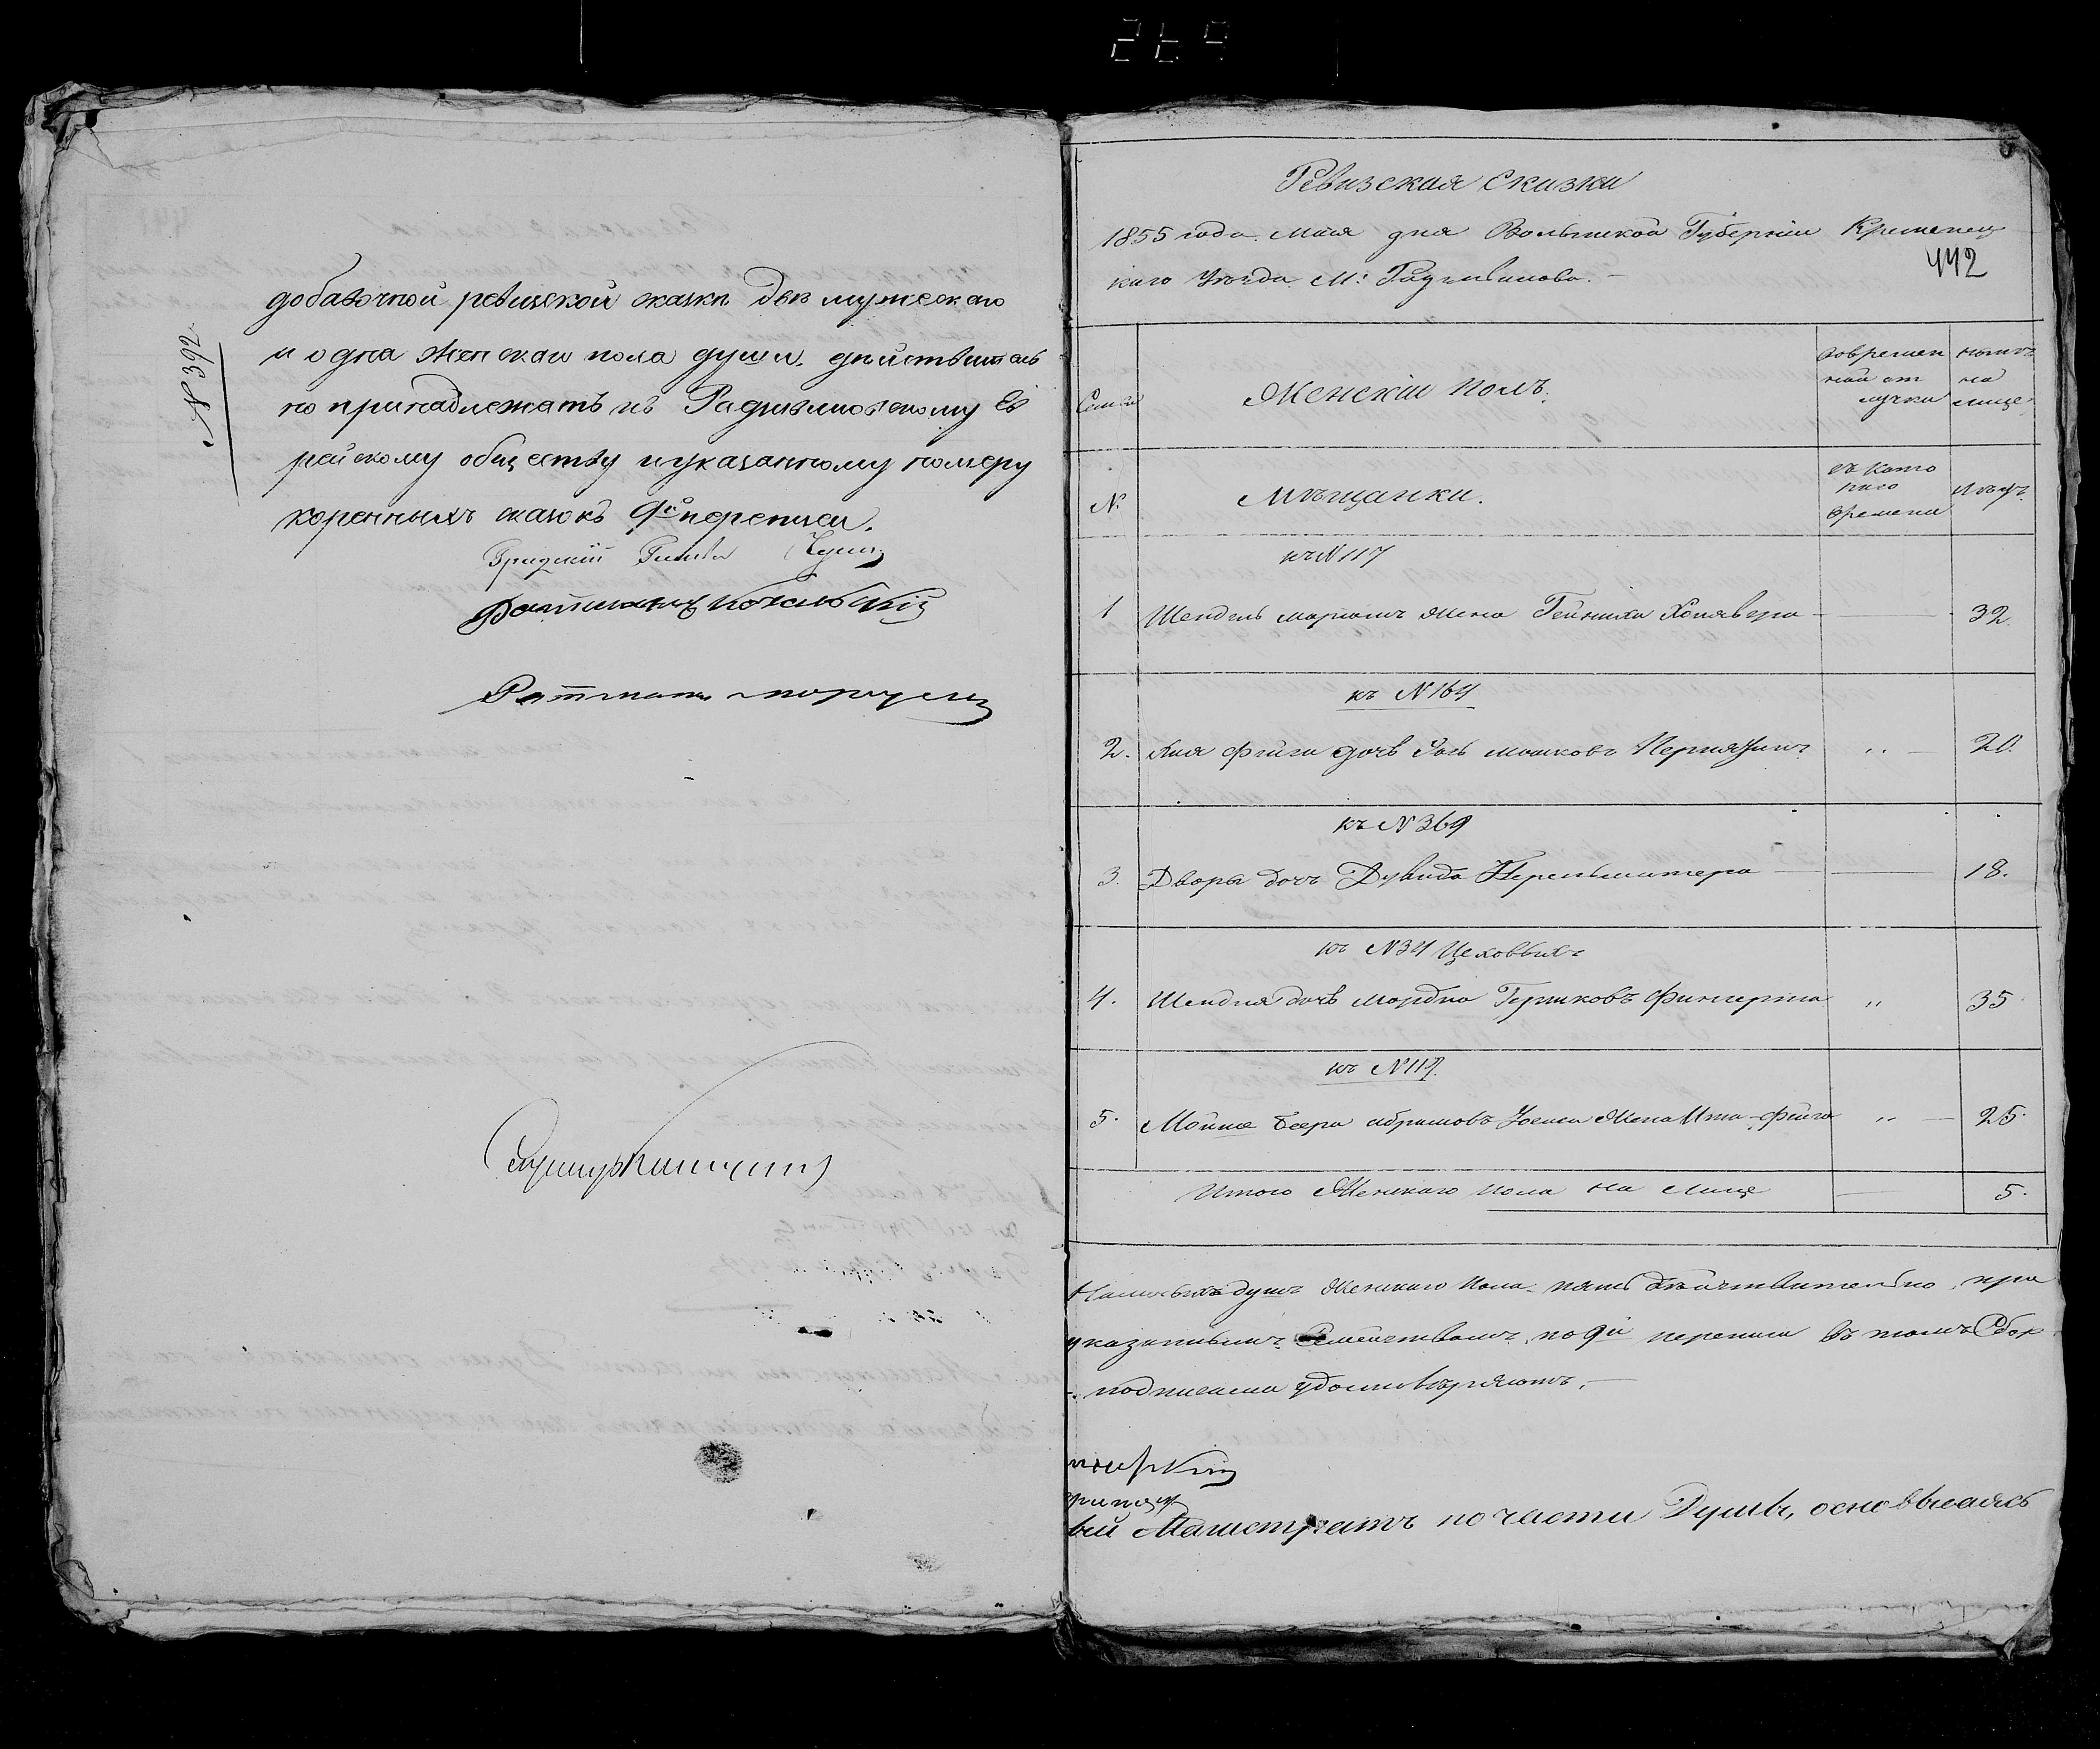 269
№ 392
добавочной ревизской сказки две мужеского
и одна женскаи пола души, действитель
но принадлежатъ къ Радзивиловскому Ев
рейскому обществу и указанному номеру
коренныхъ сказокъ 9й переписи.
Градскій Глава
Ратманъ
Ратманъ
Ревизская Сказка
1855 года Мая дня Волынской Губерніи Кременец
каго Уезда М: Радзивилова.
442
Семьи
Женскій полъ.
Во времен
ной от
лучки
ныне
на
лице
№:
Мещанки.
съ кото
раго
времени
Летъ.
къ № 117
1 Шендель жена Гейниха 32.
къ № 164
2. Хая Фейга дочь Мошковъ 20.
къ № 369
3. Двора дочь Дувида Перельмитера 18.
къ № 34 Цеховыхъ
4. Шендля дочь Мордка Гершковъ Фингерта 35
къ № 119.
5. Мошка Беера Абрамовъ жена Ита-Фейга 25.
Итого Женскаго пола на лице 5.
Наличныхъ душъ Женскаго пола пять действительно при
указаннымъ Семействамъ по 9й переписи въ томъ Евр
подписами удостоверяютъ.
вій Магистратъ по части Думы, основываясь